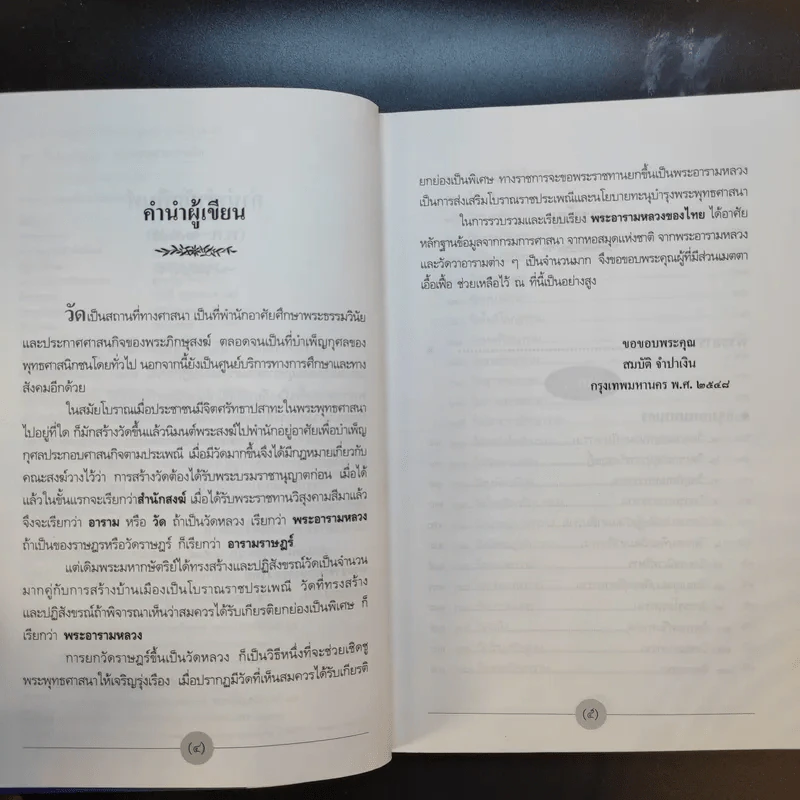 คำนำผู้เขียน
วัดเป็นสถานที่ทางศาสนา เป็นที่พำนักอาศัยศึกษาพระธรรมวินัย
และประกาศศาสนกิจของพระภิกษุสงฆ์ ตลอดจนเป็นที่บำเพ็ญกุศลของ
พุทธศาสนิกชนโดยทั่วไป นอกจากนี้ยังเป็นศูนย์บริการทางการศึกษาและทาง
สังคมอีกด้วย
ในสมัยโบราณเมื่อประชาชนมีจิตศรัทธาปสาทะในพระพุทธศาสนา
ไปอยู่ที่ใด ก็มักสร้างวัดขึ้นแล้วนิมนต์พระสงฆ์ไปพำนักอยู่อาศัยเพื่อบำเพ็ญ
กุศลประกอบศาสนกิจตามประเพณี เมื่อมีวัดมากขึ้นจึงได้มีกฎหมายเกี่ยวกับ
คณะสงฆ์วางไว้ว่า การสร้างวัดต้องได้รับพระบรมราชานุญาตก่อน เมื่อได้
แล้วในชั้นแรกจะเรียกว่าสำนักสงฆ์ เมื่อได้รับพระราชทานวิสุงคามสีมาแล้ว
จึงจะเรียกว่า อาราม หรือ วัด ถ้าเป็นวัดหลวง เรียกว่า พระอารามหลวง
ถ้าเป็นของราษฎรหรือวัดราษฎร์ ก็เรียกว่า อารามราษฎร์
แต่เดิมพระมหากษัตริย์ได้ทรงสร้างและปฏิสังขรณ์วัดเป็นจำนวน
มากคู่กับการสร้างบ้านเมืองเป็นโบราณราชประเพณี วัดที่ทรงสร้าง
และปฏิสังขรณ์ถ้าพิจารณาเห็นว่าสมควรได้รับเกียรติยกย่องเป็นพิเศษ ก็
เรียกว่า พระอารามหลวง
การยกวัดราษฎร์ขึ้นเป็นวัดหลวง ก็เป็นวิธีหนึ่งที่จะช่วยเชิดชู
พระพุทธศาสนาให้เจริญรุ่งเรือง เมื่อปรากฏมีวัดที่เห็นสมควรได้รับเกียรติ
(๔)
ยกย่องเป็นพิเศษ ทางราชการจะขอพระราชทานยกขึ้นเป็นพระอารามหลวง
เป็นการส่งเสริมโบราณราชประเพณีและนโยบายทะนุบำรุงพระพุทธศาสนา
ในการรวบรวมและเรียบเรียง พระอารามหลวงของไทย ได้อาศัย
หลักฐานข้อมูลจากกรมการศาสนา จากหอสมุดแห่งชาติ จากพระอารามหลวง
และวัดวาอารามต่าง ๆ เป็นจำนวนมาก จึงขอขอบพระคุณผู้ที่มีส่วนเมตตา
เอื้อเฟื้อ ช่วยเหลือไว้ ณ ที่นี้เป็นอย่างสูง
ขอขอบพระคุณ
สมบัติ จำปาเงิน
กรุงเทพมหานคร พ.ศ. ๒๕๔๘
(๕)